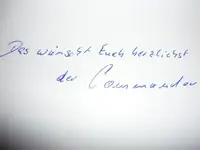 Das wünscht Euch herzlichst
der Commander